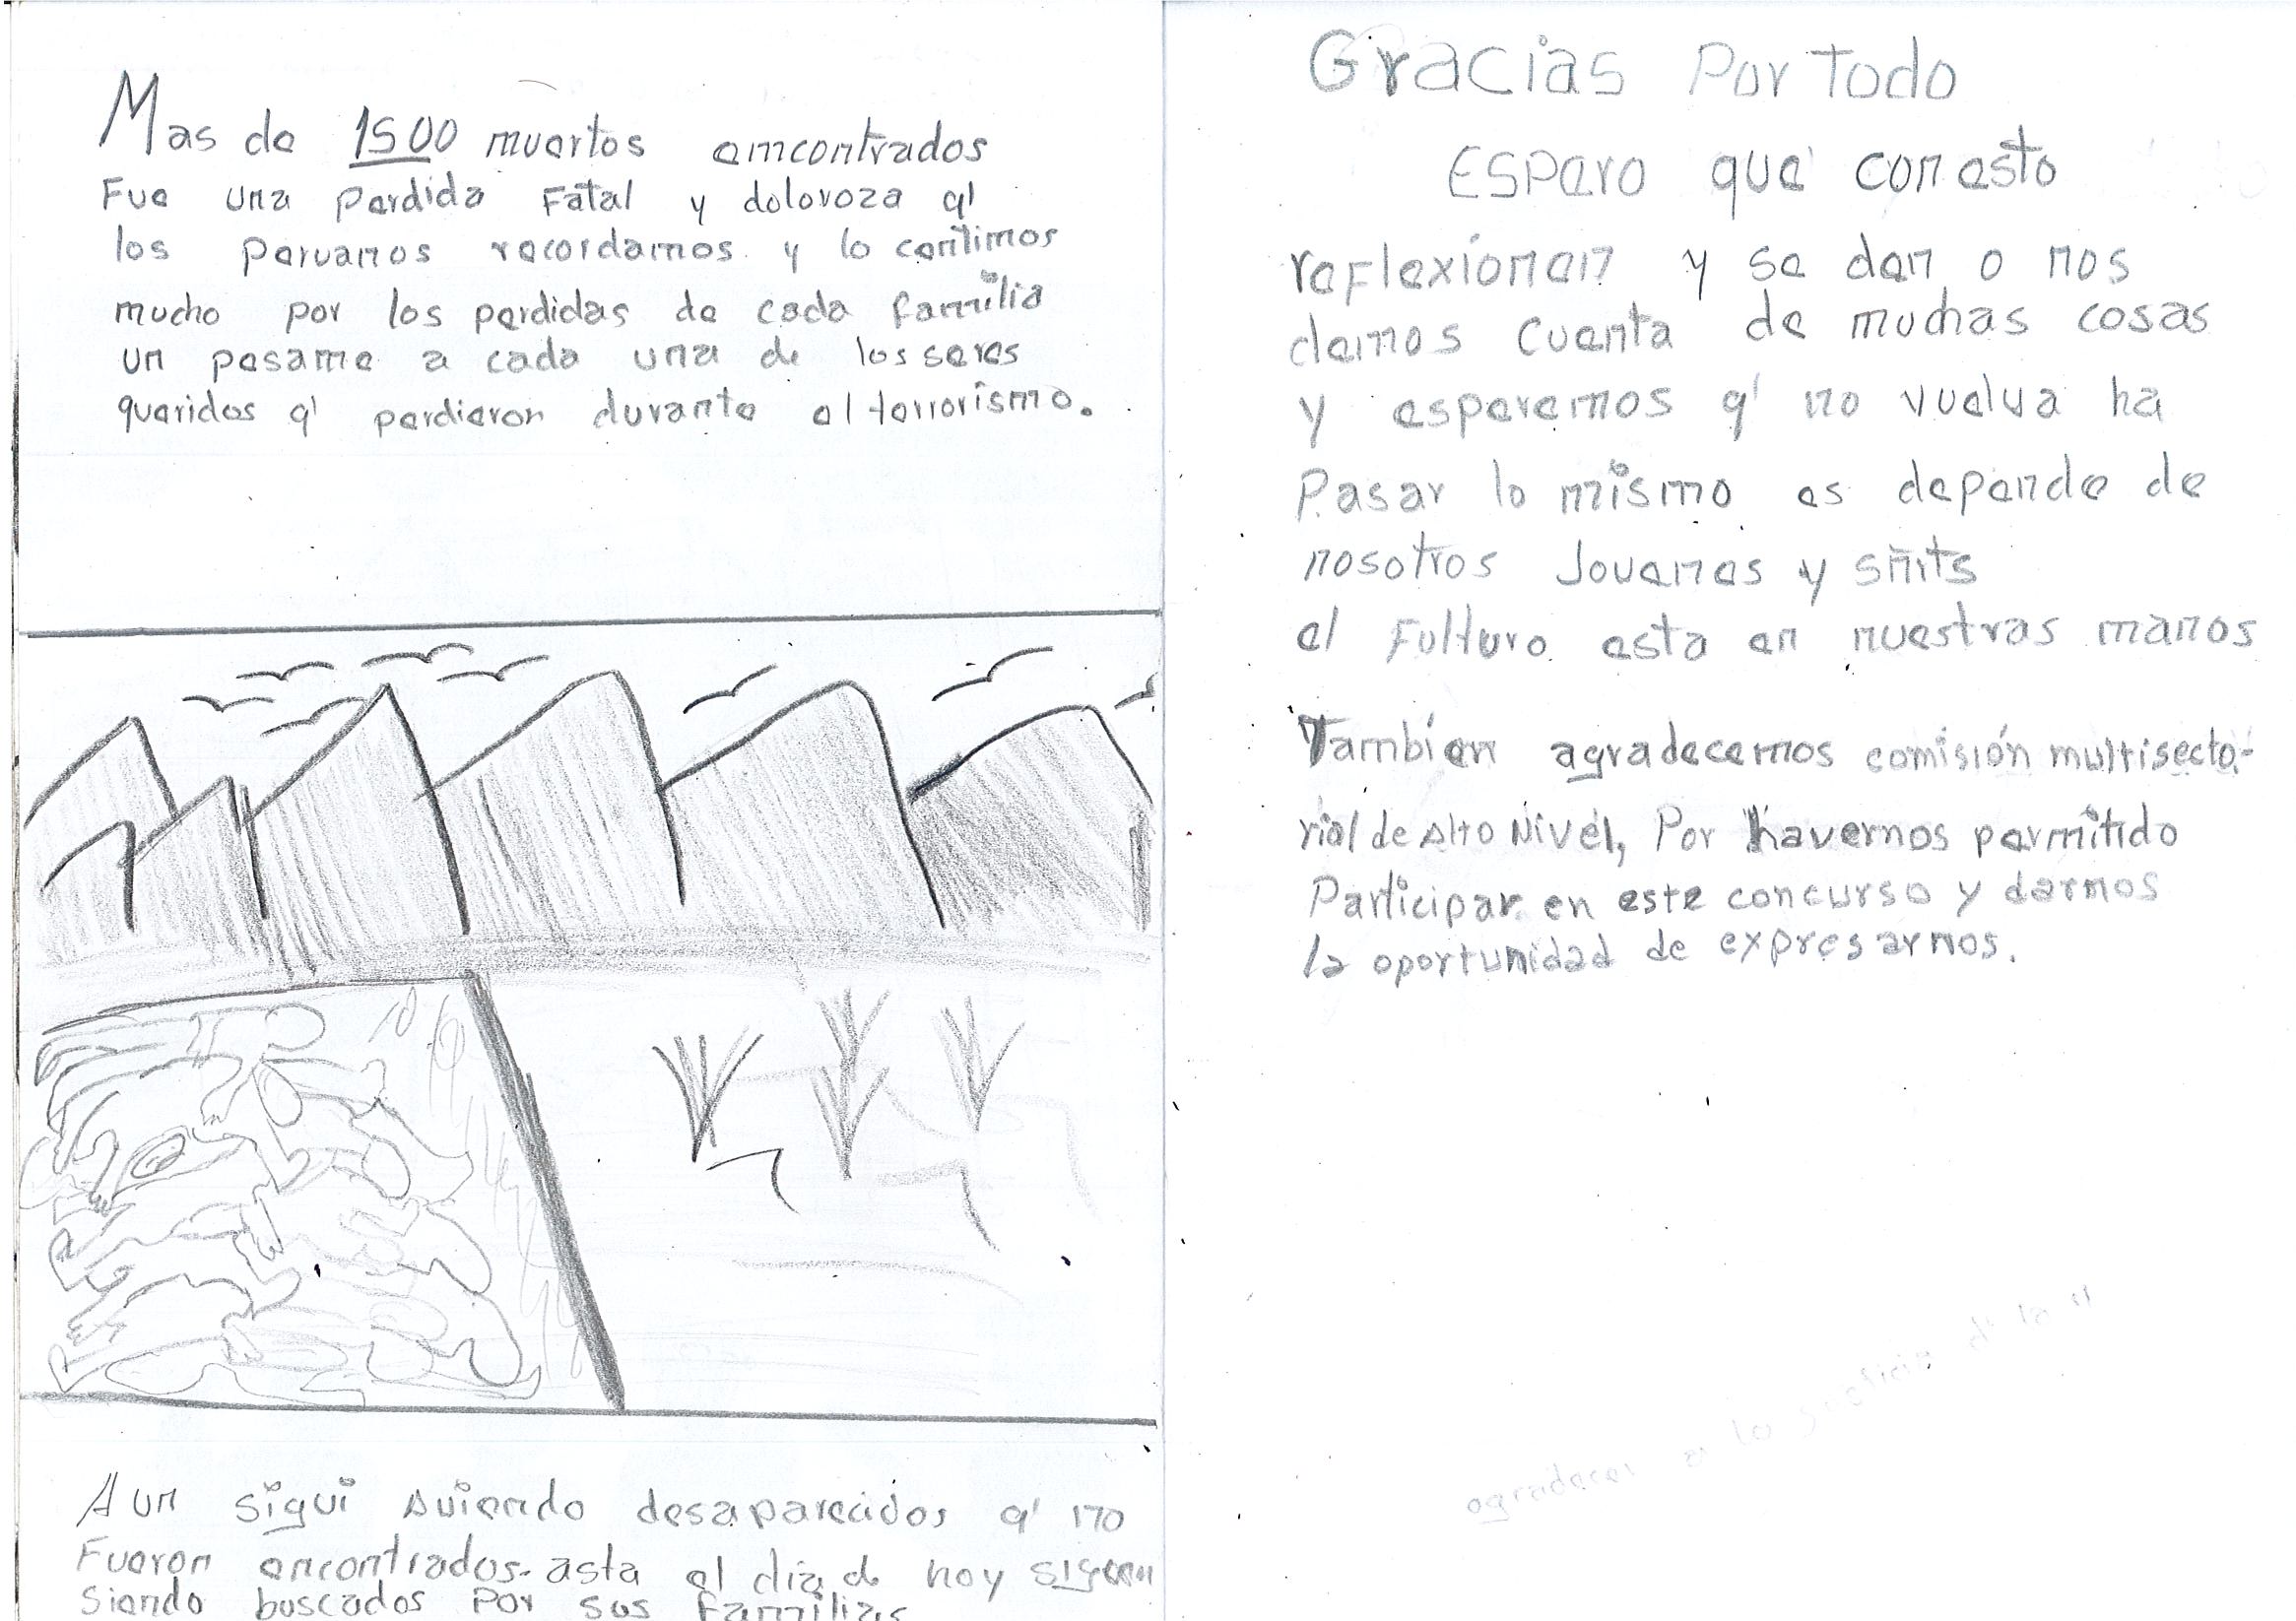 Mas de 1500 muertos emcontrados
Fue una perdida Fatal y doloroza q'
los peruanos recordamos y lo centimos
mucho por los perdidas de cada familia
un pesame a cada una de los seres
queridos q' perdieron durante el terrorismo.
Aun sigui auiendo desaparecidos q' no
Fueron encontrados. asta el dia de hoy siguen
siendo buscados por sus familias
Gracias Por Todo
ESPero que con esto
reflexionen y se den o nos
demos cuenta de muchas cosas
y esperemos q' no vuelva ha
Pasar lo mismo es depende de
nosotros Jovenes y
el Futturo esta en nuestras manos
Tambien agradecemos comisión multisecto-
rial de Alto Nivel, Por havernos permitido
Participar en este concurso y darnos
la oportunidad de expresarnos.
agradecer a